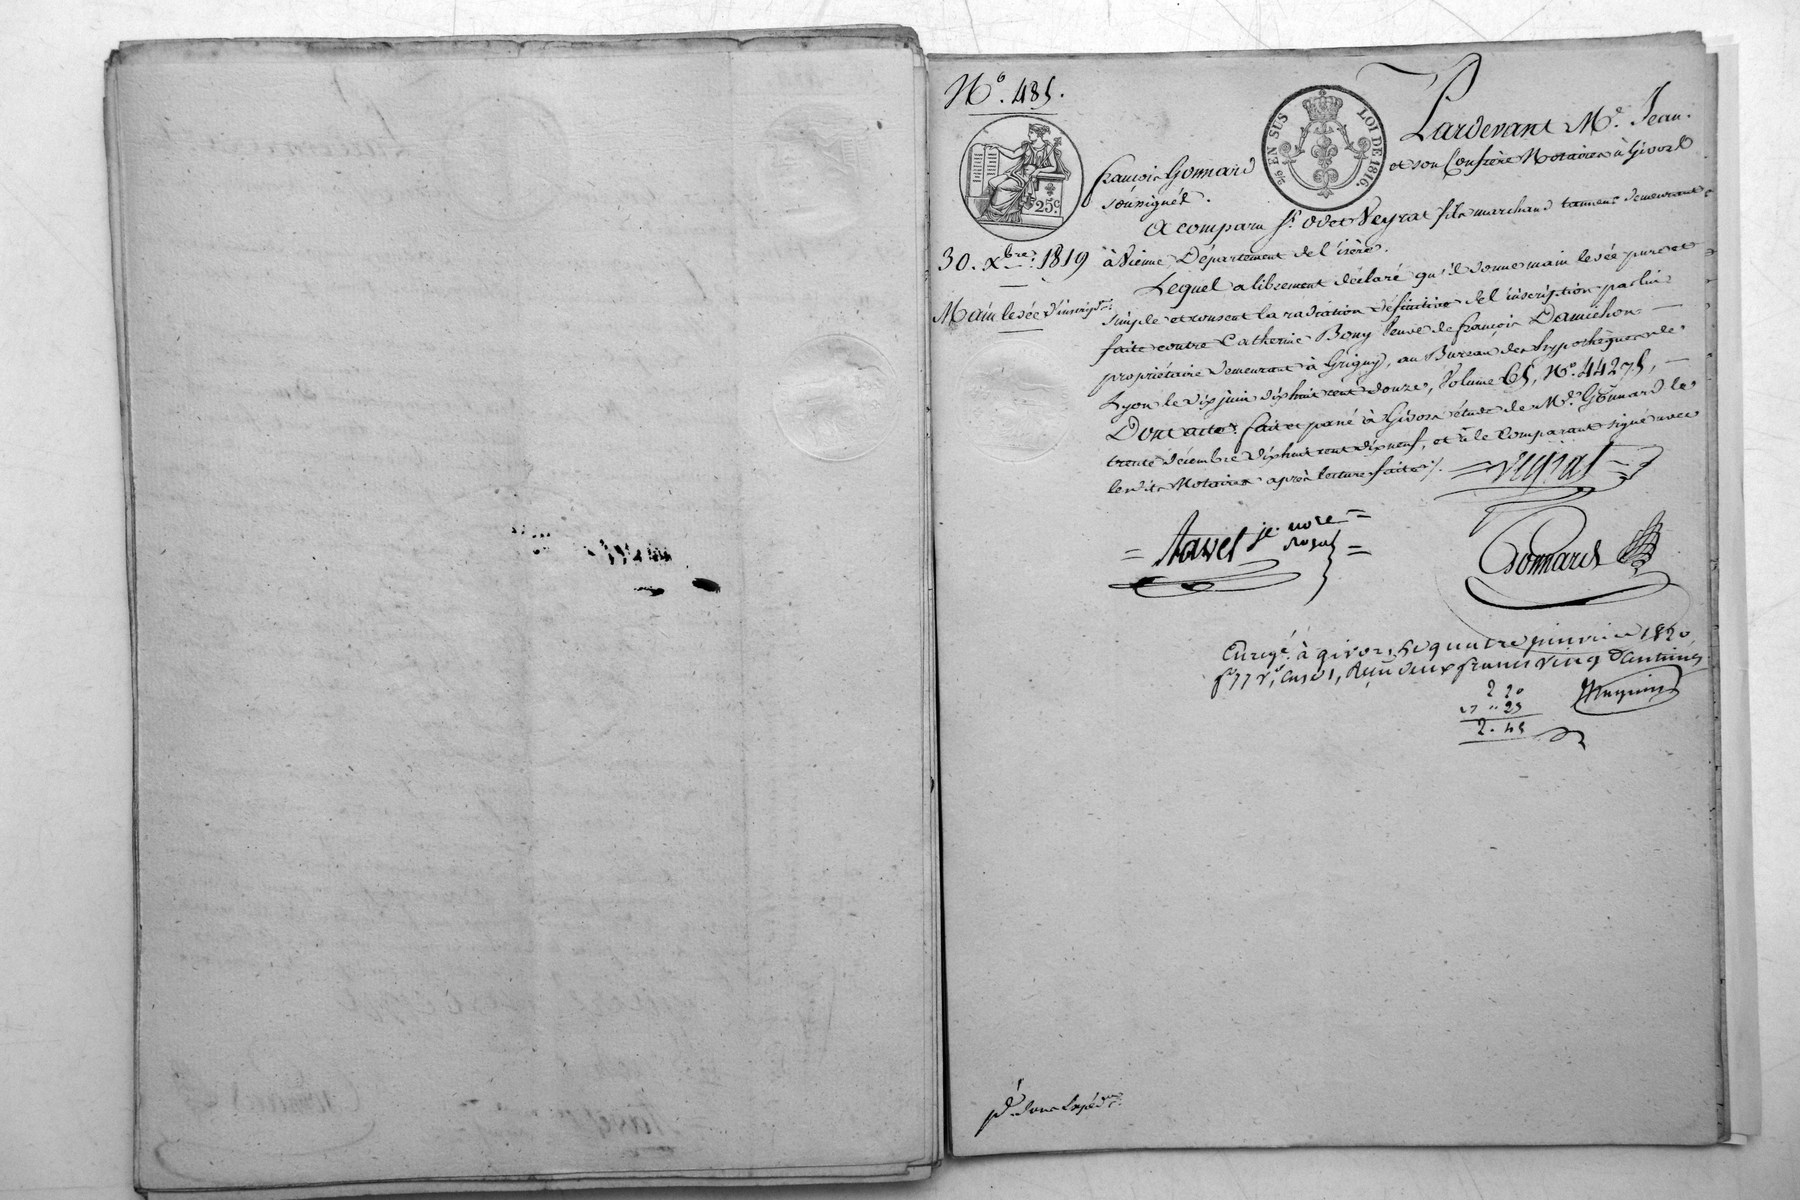 N.º 485.
25 c.
EN SUS
LOI DE 1816.
Pardevant M.e Jean
françois Gonnard
et son Confrère Notaires à Givors
Soussignés.
A comparu S.r Odet Veyrat fils marchand tanneur demeurant
30. xbre. 1819
à Vienne Département de l'isère.
Lequel a librement déclaré qu'il donne main levée pure et
Main levée d'inscrip.on
simple et consent la radiation définitive de l'inscription par lui
faite contre Catherine Bony veuve de françois Damichon
propriétaire demeurant à Grigny, au Bureau des hypothèques de
Lyon le dix juin dix huit cent douze, Volume 65, N.º 44275,
Dont acte. fait et passé à Givors étude de M.e Gonnard le
trente décembre dix huit cent dix neuf, et a le Comparant signé avec
lesdits Notaires après lecture faite.
Veyrat
Gonnard
Enregé. à givors le quatre janvier 1820
f.º 77 r.º, Case 1, Reçu deux francs vingt Centimes
2 20
" 25
2. 45